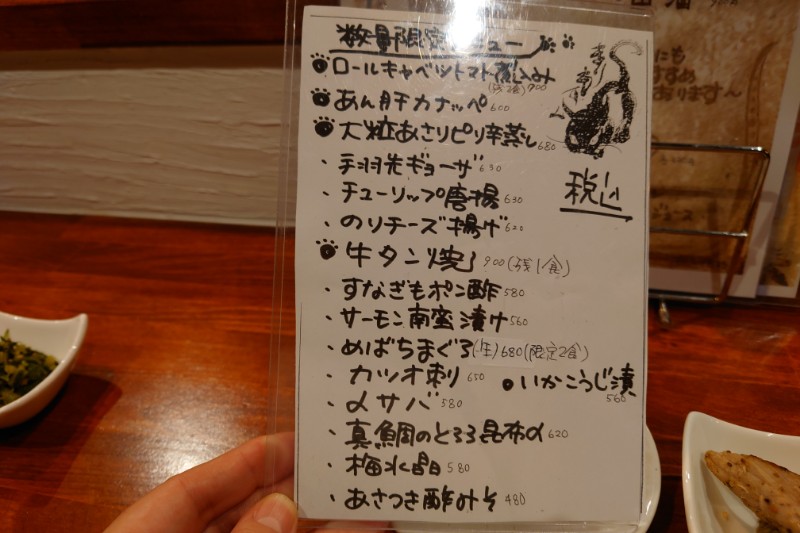 数量限定メニュー
ロールキャベツトマト煮込み
(残2食)900
あん肝カナッペ600
大粒あさりピリ辛蒸し680
・手羽先ギョーザ630
・チューリップ唐揚630
・のりチーズ揚げ620
税込
牛タン焼900(残1食)
・すなぎもポン酢580
・サーモン南蛮漬け560
・めばちまぐろ(生)680(限定2食)
・カツオ刺り650
●いかこうじ漬560
・〆サバ580
・真鯛のとろろ昆布〆620
・梅水晶580
・あさつき酢みそ480